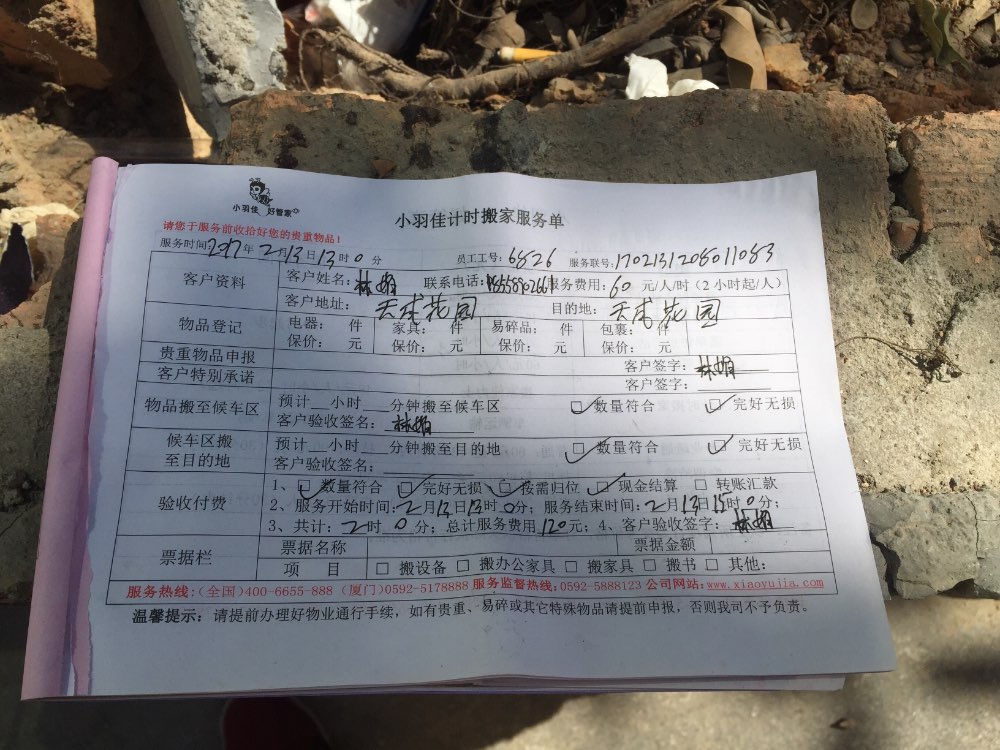 小羽佳 好管家
小羽佳计时搬家服务单
请您于服务前收拾好您的贵重物品！
服务时间2017年2月13日13时0分 员工工号：6826 服务联号：1702131208011083
客户资料 客户姓名：林娟 联系电话： 服务费用：60元/人/时(2小时起/人)
客户地址：天成花园 目的地：天成花园
物品登记 电器： 件 家具： 件 易碎品： 件 包裹： 件
保价： 元 保价： 元 保价： 元 保价： 元
贵重物品申报 客户签字：林娟
客户特别承诺 客户签字：
物品搬至候车区 预计__小时__分钟搬至候车区 ☑数量符合 ☑完好无损
客户验收签名：林娟
候车区搬至目的地 预计__小时__分钟搬至目的地 ☑数量符合 ☑完好无损
客户验收签名：
验收付费 1、☑数量符合 ☑完好无损 ☑按需归位 ☑现金结算 □转账汇款
2、服务开始时间：2月13日13时0分；服务结束时间：2月13日15时0分；
3、共计：2时0分；总计服务费用120元；4、客户验收签字：林娟
票据栏 票据名称 票据金额
项 目 □搬设备 □搬办公家具 □搬家具 □搬书 □其他：
服务热线：(全国)400-6655-888 (厦门)0592-5178888 服务监督热线：0592-5888123 公司网站：www.xiaoyujia.com
温馨提示：请提前办理好物业通行手续，如有贵重、易碎或其它特殊物品请提前申报，否则我司不予负责。